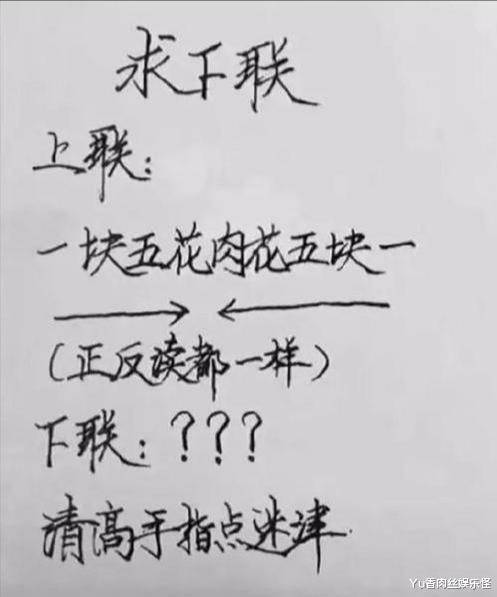 求下联
上联:
一块五花肉花五块一
(正反读都一样)
下联:???
请高手指点迷津.
Yu香肉丝娱乐怪